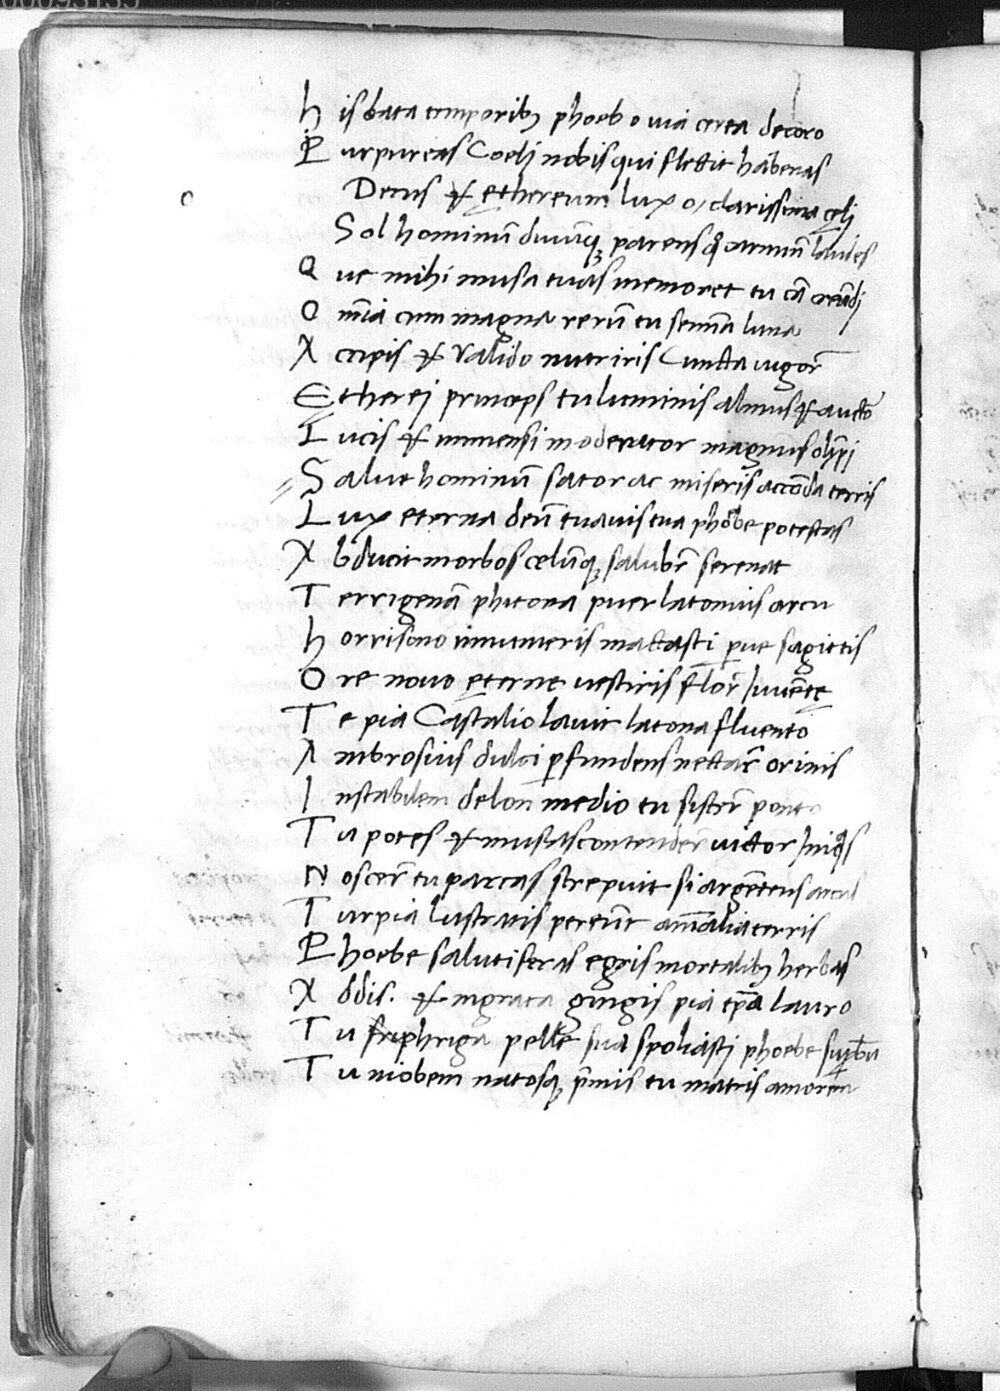 00093133
H is data temporibꝫ phoebo uia certa decoro
P urpureas Coelj nobis qui flectit habenas
Decus & ęthereum lux o, clarissima cęlj
Sol hominū diuūqꝫ parens q̄ carmin̄ laudes
Q ue mihi musa tuas memoret tu cā creādj
O m̄ia cum magna rerū tu semīa luna
A ccipis & valido nutriris Cuncta uigor̄
E therej princeps tu luminis almus & auctō
L ucis & immensi moderator magnus olȳpj
S alue hominū sator ac miseris accōda terris
L ux eterna deū tua uis tua phoebe potestas
A bducit morbos celūqꝫ salubr̄ serenat
T errigenā phitona puer latonius arcu
H orrisono innumeris mactasti pene sagittis
O re nouo ęterne uestiris flor̄ Iuuētę
T e pia Castalio lauit latona fluento
A mbrosius dulci ꝑfundens nectar̄ crinis
I nstabilem delon medio tu sister̄ ponto
T u potes & musas contender̄ uictor Iniq̄s
N oscer̄ tu parcas strepuit si argēteus arcus
T urpia lustratis pereūt aīalia terris
P hoebe salutiferas egris mortalibꝫ herbas
A ddis. & ingrata gingis pia tp̄a lauro
T u phrigā pelle sua spoliastj phoebe suꝑbū
T u niobem natosqꝫ p̄mis tu matris amorem